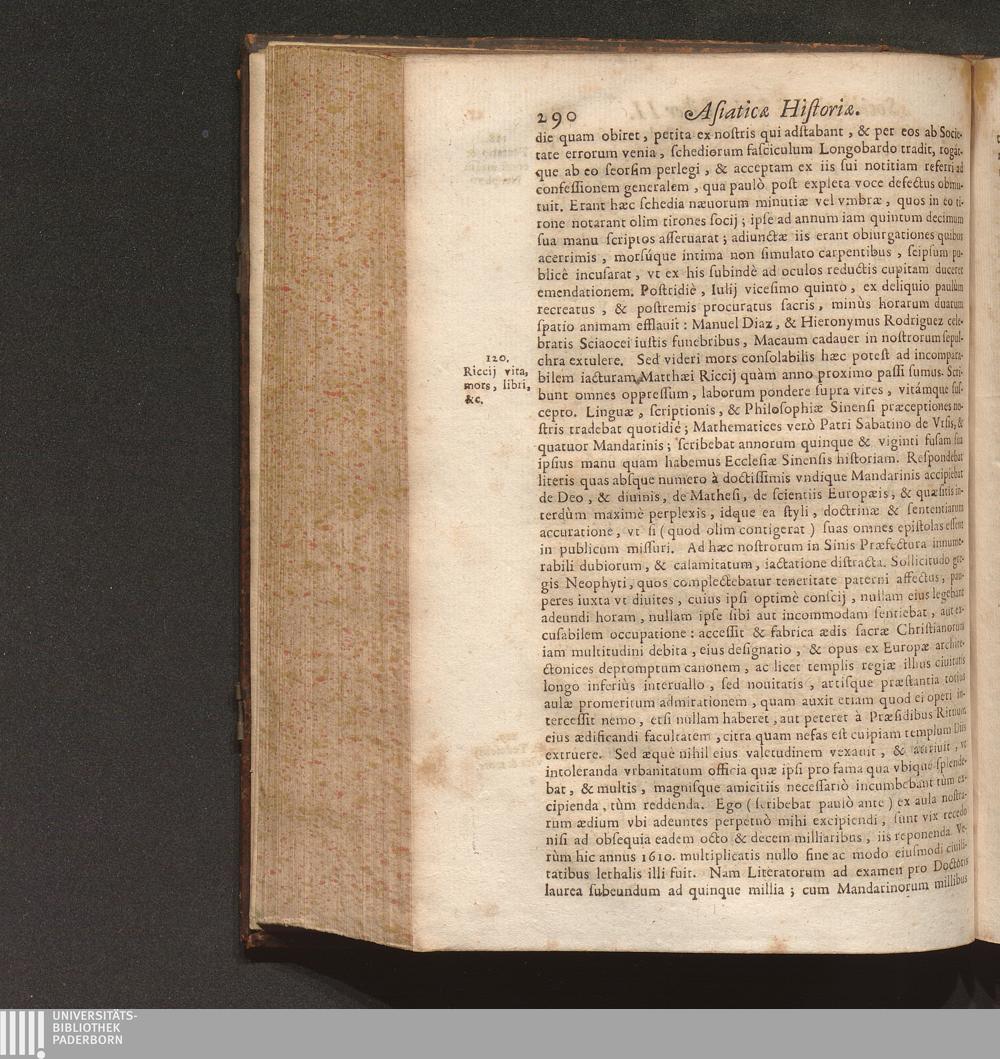 290 Aſiaticæ Hiſtoriæ.
die quam obiret, petita ex noſtris qui adſtabant, & per eos ab Socie-
tate errorum venia, ſchediorum faſciculum Longobardo tradit, rogat-
que ab eo ſeorſim perlegi, & acceptam ex iis ſui notitiam referri ad
confeſſionem generalem, qua paulò poſt expleta voce defectus obmu-
tuit. Erant hæc ſchedia næuorum minutiæ vel vmbræ, quos in eo ti-
rone notarant olim tirones ſocij; ipſe ad annum iam quintum decimum
ſua manu ſcriptos aſſeruarat; adiunctæ iis erant obiurgationes quibus
acerrimis, morſúque intima non ſimulato carpentibus, ſeipſum pu-
blicè incuſarat, vt ex his ſubindè ad oculos reductis cupitam duceret
emendationem. Poſtridiè, Iulij viceſimo quinto, ex deliquio paulùm
recreatus, & poſtremis procuratus ſacris, minùs horarum duarum
ſpatio animam efflauit: Manuel Diaz, & Hieronymus Rodriguez cele-
bratis Sciaocei iuſtis funebribus, Macaum cadauer in noſtrorum ſepul-
chra extulere. Sed videri mors conſolabilis hæc poteſt ad incompara-
bilem iacturam Matthæi Riccij quàm anno proximo paſſi ſumus. Scri-
bunt omnes oppreſſum, laborum pondere ſupra vires, vitámque ſuſ-
cepto. Linguæ, ſcriptionis, & Philoſophiæ Sinenſi præceptiones no-
ſtris tradebat quotidiè; Mathematices verò Patri Sabatino de Vrſis, &
quatuor Mandarinis; ſcribebat annorum quinque & viginti fuſam ſua
ipſius manu quam habemus Eccleſiæ Sinenſis hiſtoriam. Reſpondebat
literis quas abſque numero à doctiſſimis vndique Mandarinis accipiebat
de Deo, & diuinis, de Matheſi, de ſcientiis Europæis, & quæſitis in-
terdùm maximè perplexis, idque ea ſtyli, doctrinæ & ſententiarum
accuratione, vt ſi (quod olim contigerat) ſuas omnes epiſtolas eſſent
in publicum miſſuri. Ad hæc noſtrorum in Sinis Præfectura innume-
rabili dubiorum, & calamitatum, iactatione diſtracta. Sollicitudo gre-
gis Neophyti, quos complectebatur teneritate paterni affectus, pau-
peres iuxta vt diuites, cuius ipſi optimè conſcij, nullam eius legebant
adeundi horam, nullam ipſe ſibi aut incommodam ſentiebat, aut ex-
cuſabilem occupatione: acceſſit & fabrica ædis ſacræ Chriſtianorum
iam multitudini debita, eius deſignatio, & opus ex Europæ archite-
ctonices depromptum canonem, ac licet templis regiæ illius ciuitatis
longo inferiùs interuallo, ſed nouitatis, artiſque præſtantia totius
aulæ promeritum admirationem, quam auxit etiam quod ei operi in-
terceſſit nemo, etſi nullam haberet, aut peteret à Præſidibus Rituum
eius ædificandi facultatem, citra quam nefas eſt cuipiam templum Diis
extruere. Sed æquè nihil eius valetudinem vexauit, & attriuit, vt
intoleranda vrbanitatum officia quæ ipſi pro fama qua vbique ſplende-
bat, & multis, magniſque amicitiis neceſſariò incumbebant tùm ex-
cipienda, tùm reddenda. Ego (ſcribebat paulò ante) ex aula noſtra-
rum ædium vbi adeuntes perpetuò mihi excipiendi, ſunt vix recedo
niſi ad obſequia eadem octo & decem milliaribus, iis reponenda. Ve-
rùm hic annus 1610. multiplicatis nullo fine ac modo eiuſmodi ciuili-
tatibus lethalis illi fuit. Nam Literatorum ad examen pro Doctoris
laurea ſubeundum ad quinque millia; cum Mandarinorum millibus
120.
Riccij vita,
mors, libri,
&c.
UNIVERSITÄTS-
BIBLIOTHEK
PADERBORN